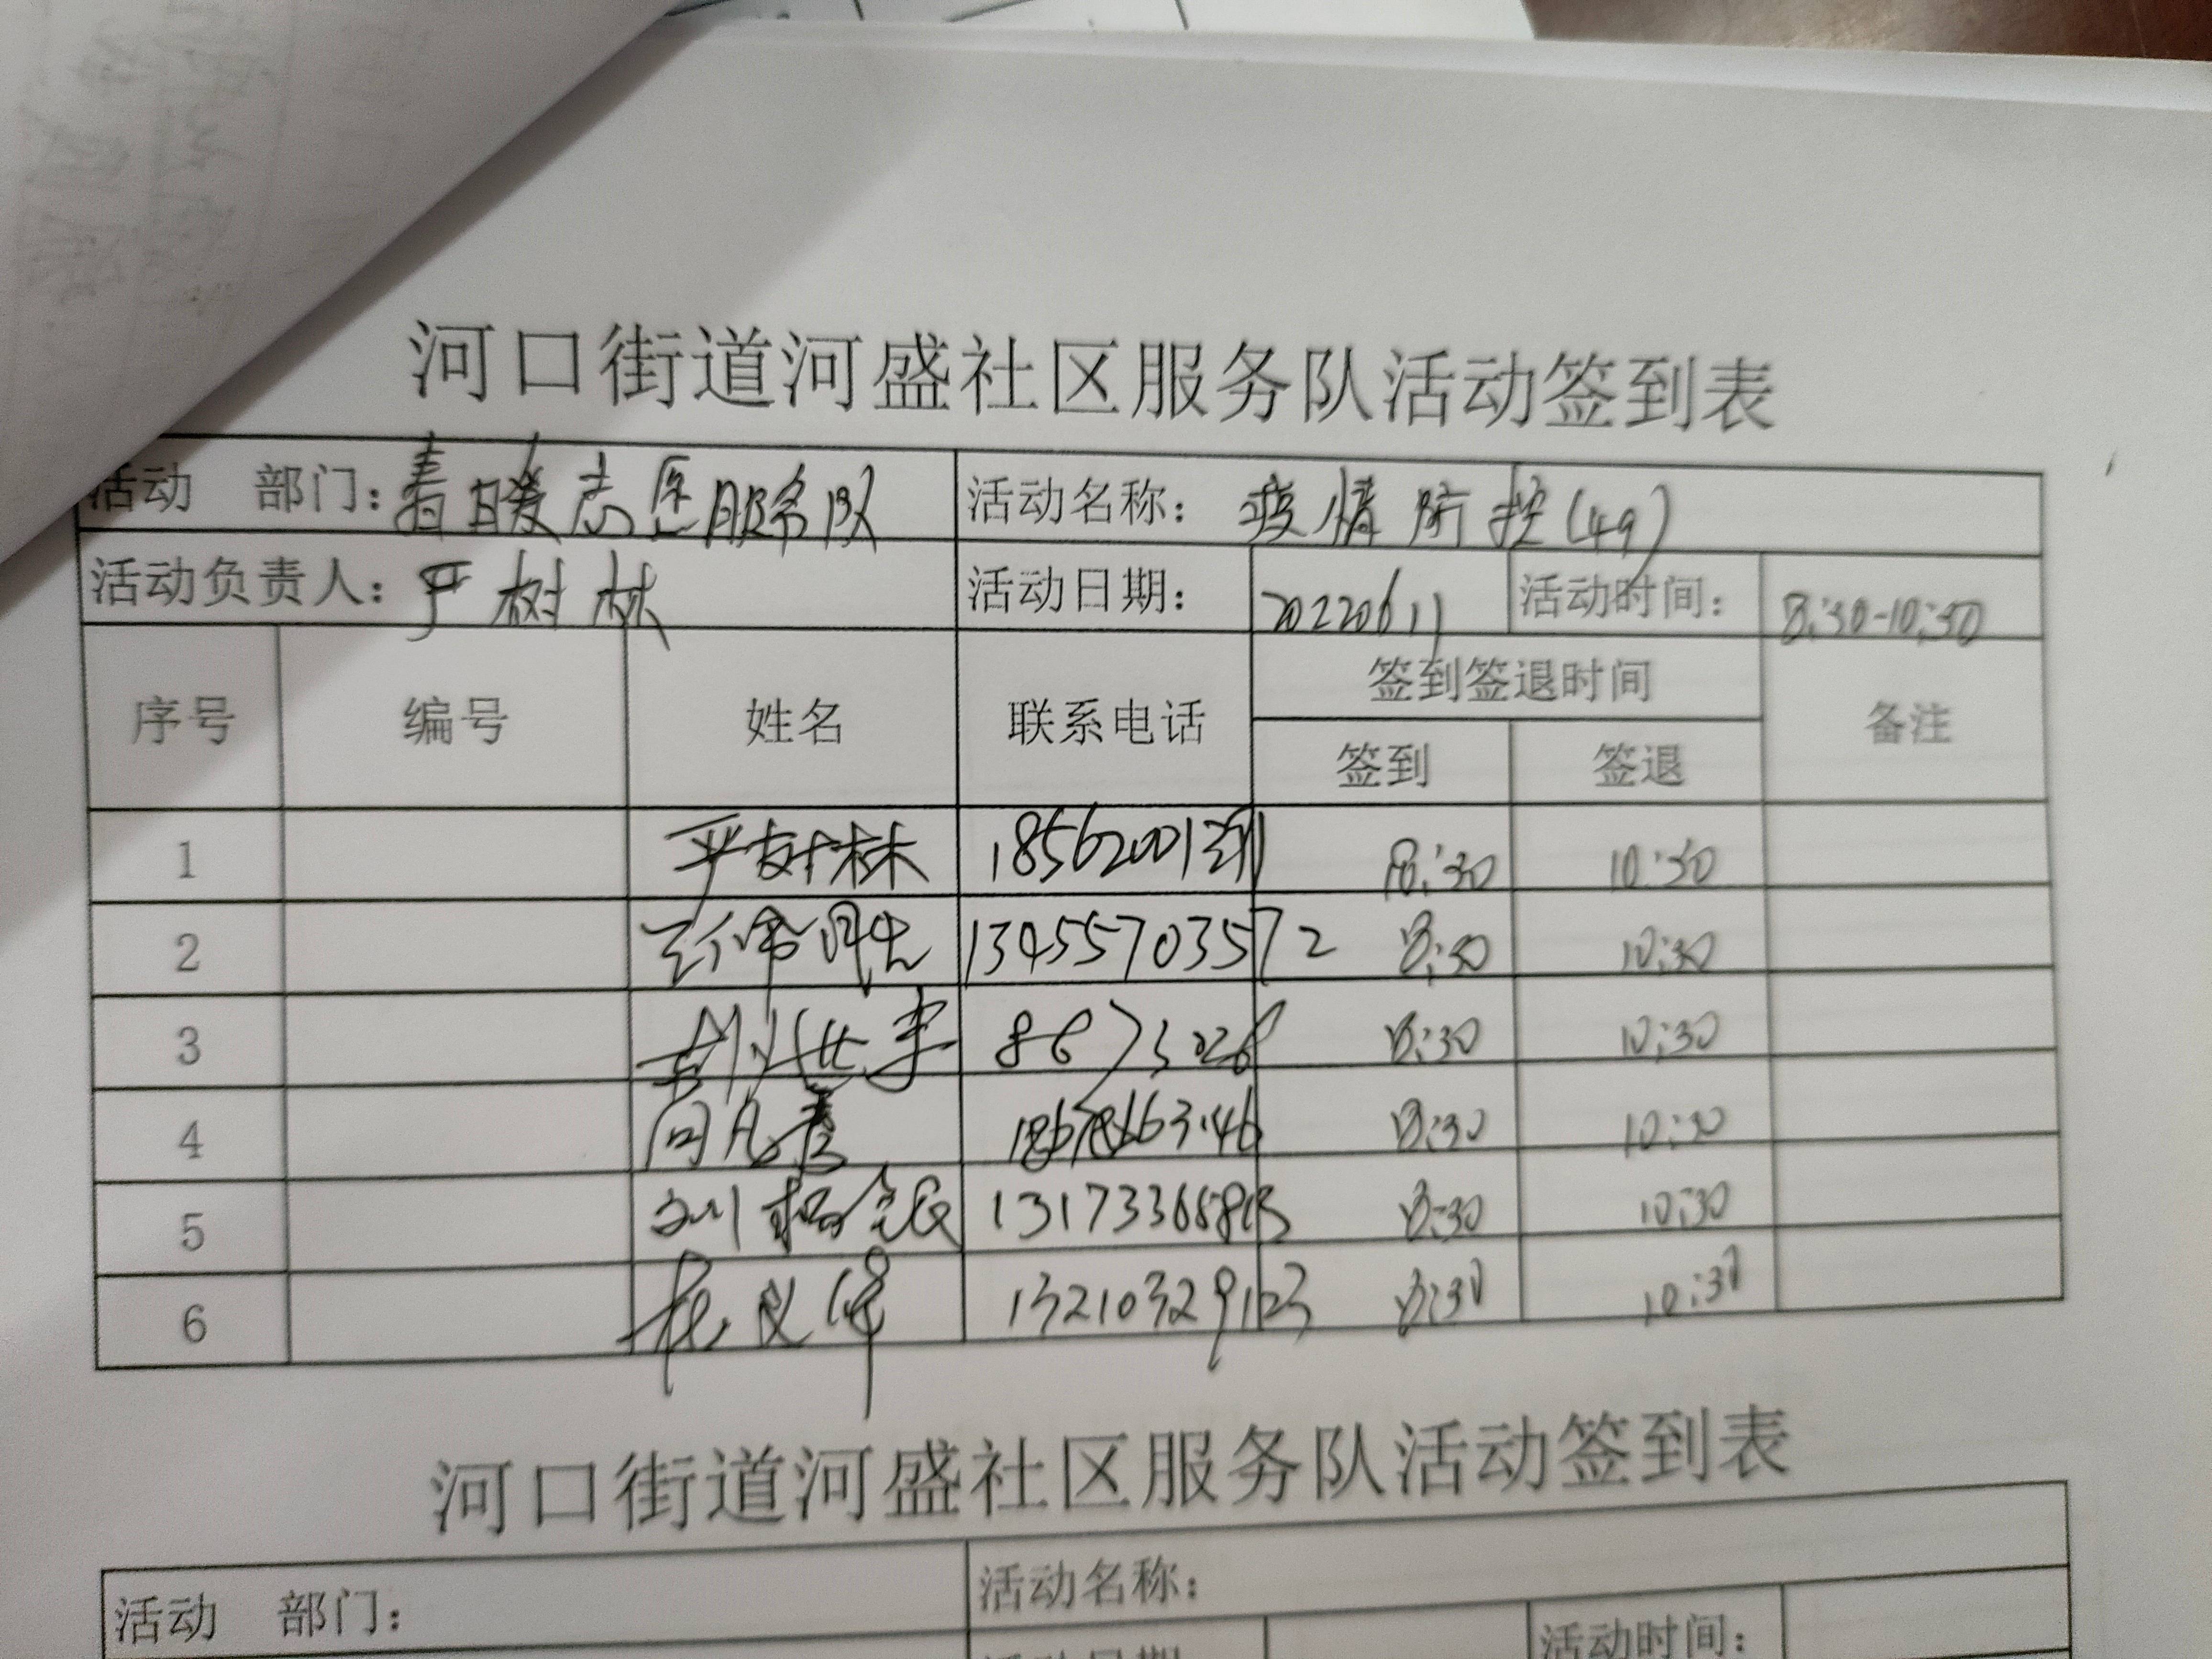 河口街道河盛社区服务队活动签到表
活动 部门：春暖志愿服务队 活动名称： 疫情防控(49)
活动负责人：严树林 活动日期： 20220611 活动时间： 8:30-10:30
序号 编号 姓名 联系电话 签到签退时间 备注
签到 签退
1 严树林 8:30 10:30
2 13455703572 8:30 10:30
3 8:30 10:30
4 8:30 10:30
5 8:30 10:30
6 13210329123 8:30 10:30
河口街道河盛社区服务队活动签到表
活动 部门： 活动名称：
活动日期 活动时间：